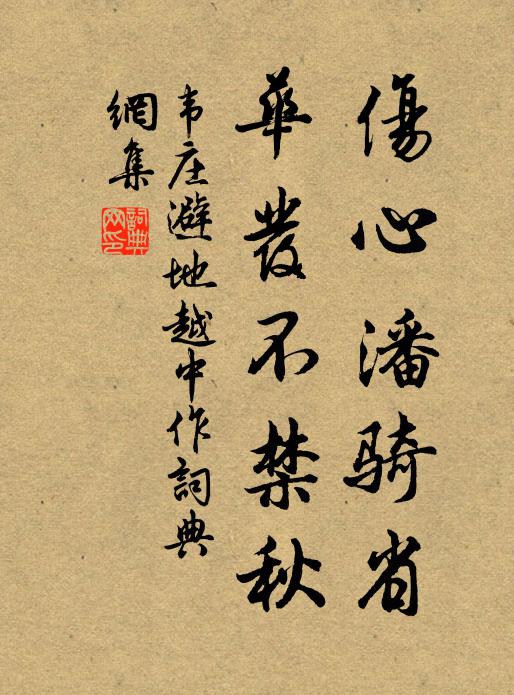 傷心潘骑省
華發不禁秋
韦庄避地越中作詞典
網集
詞典
网印